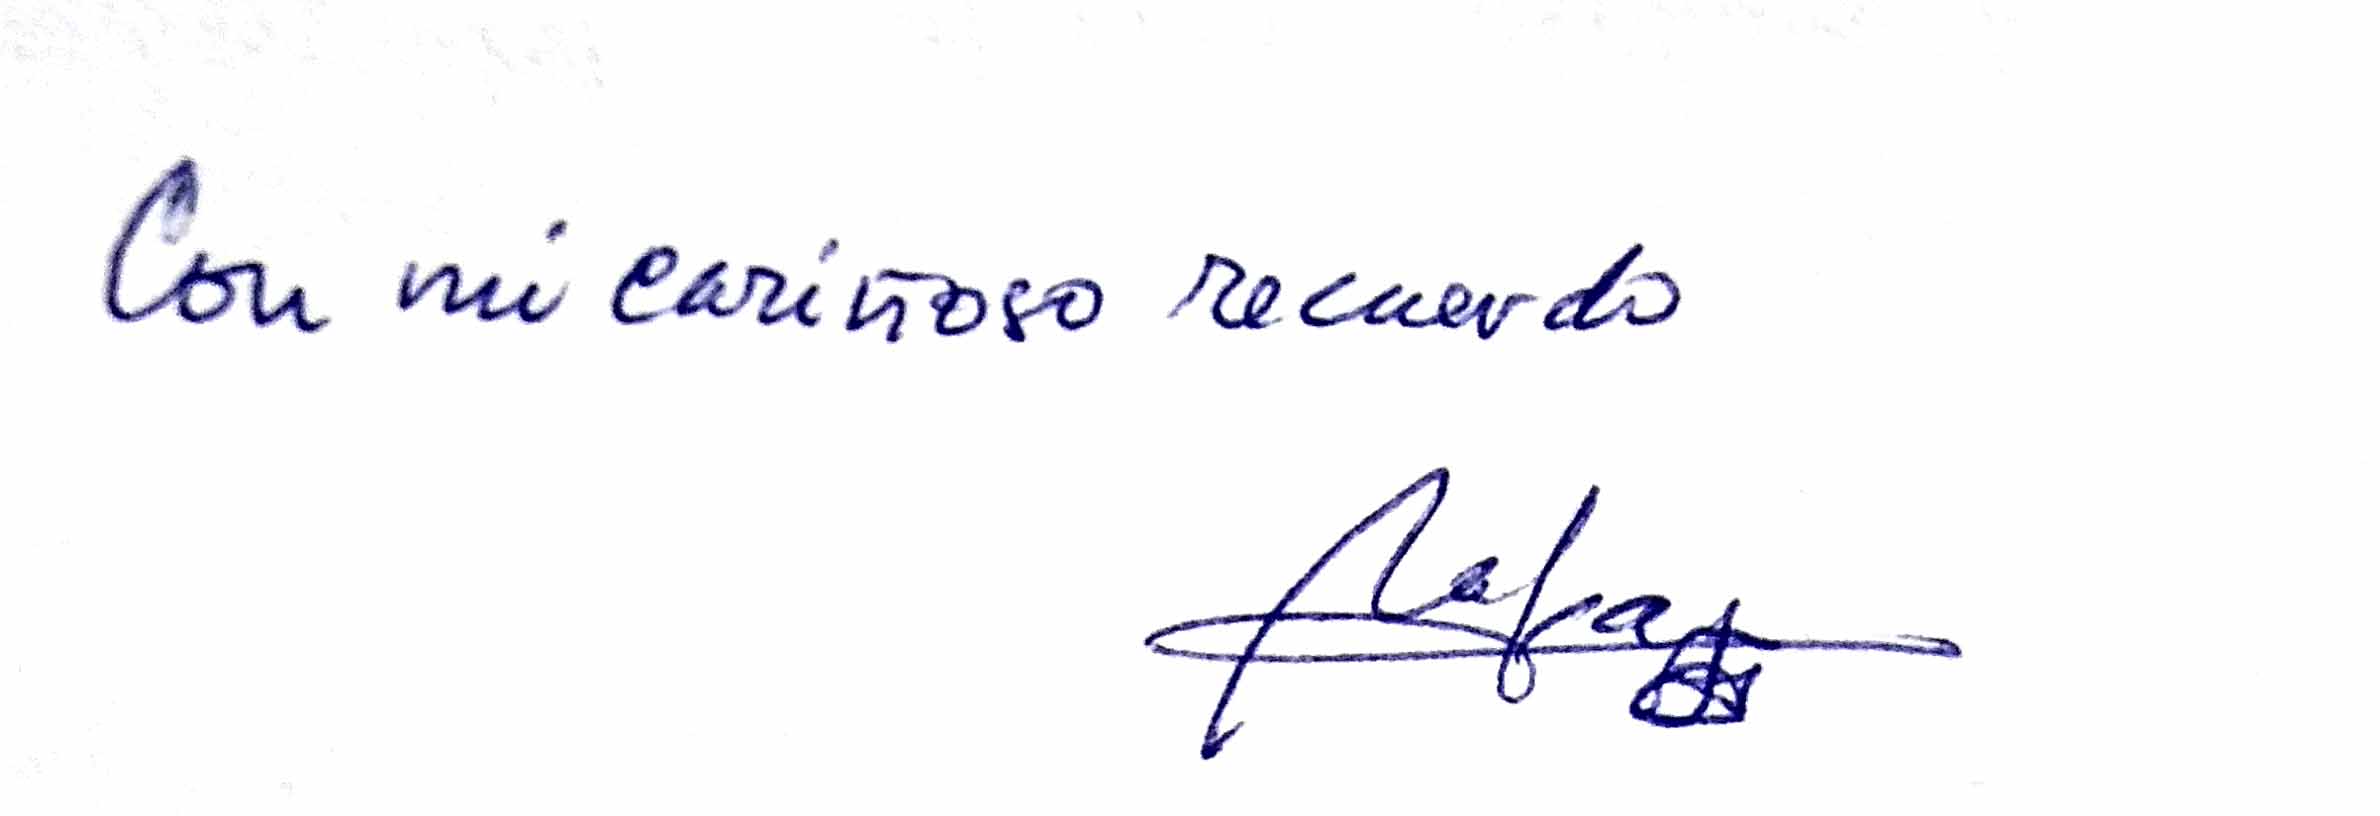 Con mi cariñoso recuerdo